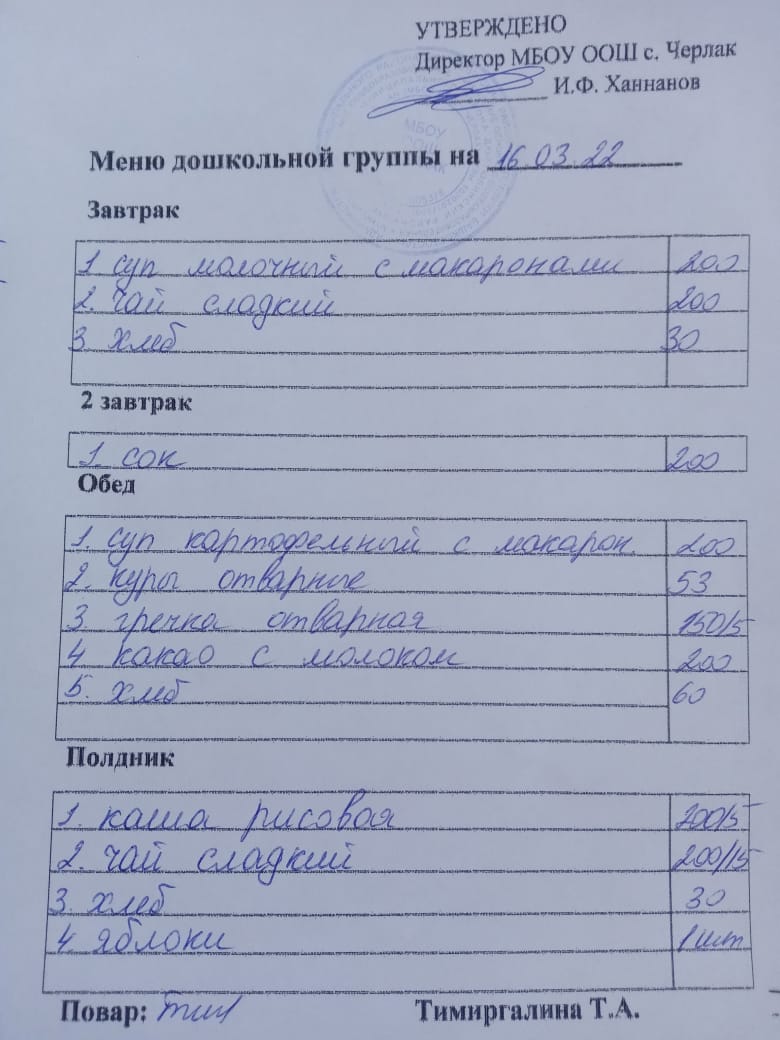 УТВЕРЖДЕНО
Директор МБОУ ООШ с. Черлак
И.Ф. Ханнанов
МБОУ
ООШ
Меню дошкольной группы на 16.03.22
Завтрак
1 суп молочный с макаронами 200
2. чай сладкий 200
3. хлеб 30
2 завтрак
1. сок 200
Обед
1. суп картофельный с макарон. 200
2. куры отварные 53
3. гречка отварная 150/5
4. какао с молоком 200
5. хлеб 60
Полдник
1. каша рисовая 200/5
2. чай сладкий 200/15
3. хлеб 30
4. яблоки 1 шт
Повар: Тимиргалина Т.А.